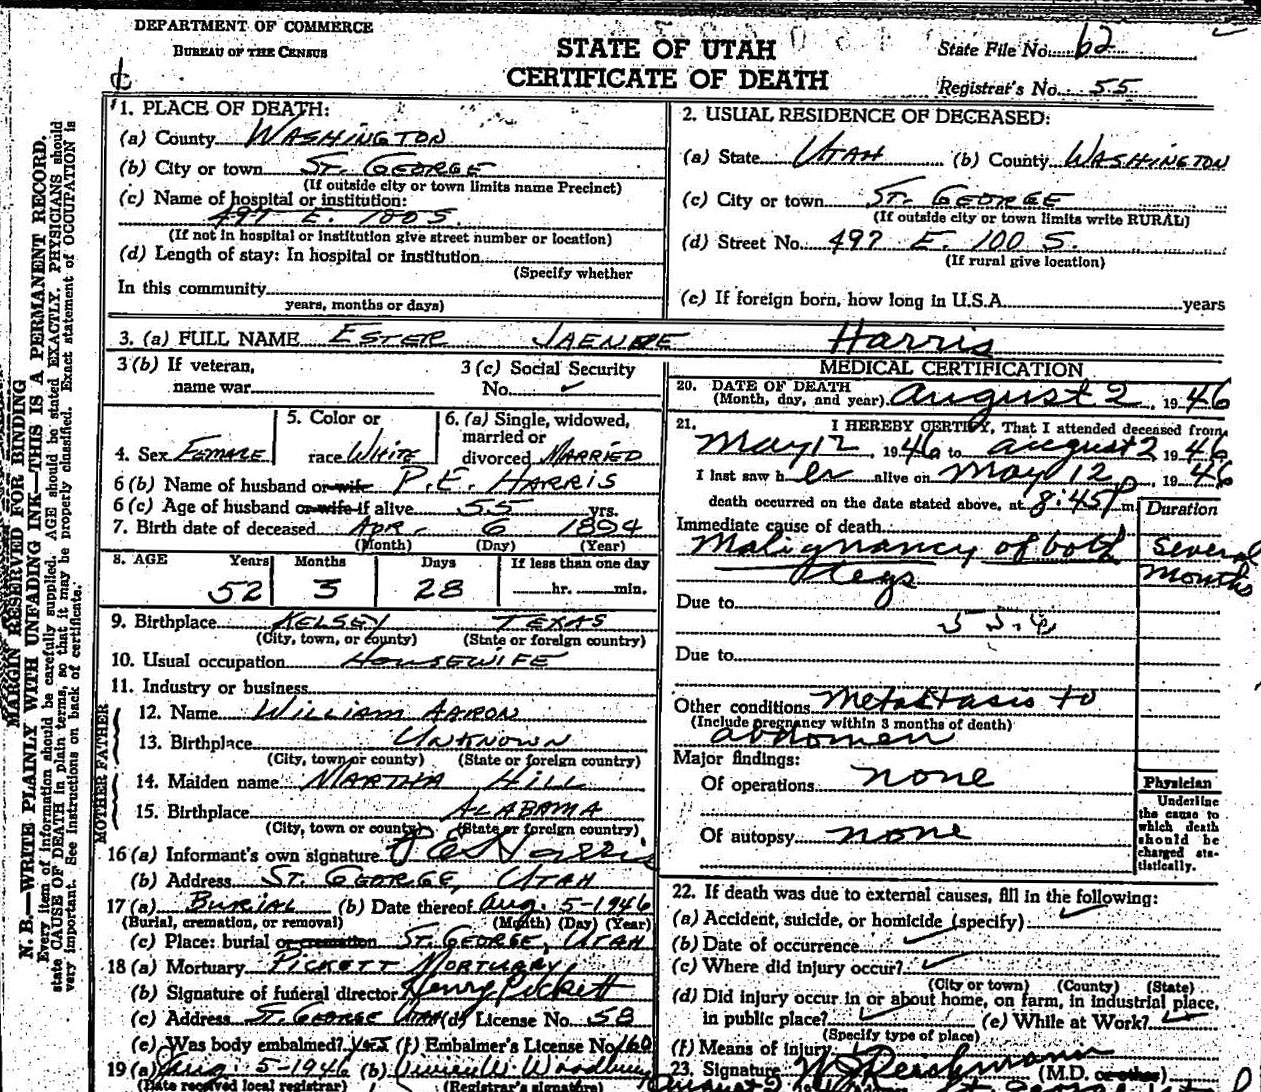 DEPARTMENT OF COMMERCE
BUREAU OF THE CENSUS
STATE OF UTAH
CERTIFICATE OF DEATH
State File No. 62
Registrar's No. 55
MARGIN RESERVED FOR BINDING
N. B.—WRITE PLAINLY WITH UNFADING INK—THIS IS A PERMANENT RECORD.
Every item of information should be carefully supplied. AGE should be stated EXACTLY. PHYSICIANS should
state CAUSE OF DEATH in plain terms, so that it may be properly classified. Exact statement of OCCUPATION is
very important. See instructions on back of certificate.
1. PLACE OF DEATH:
(a) County WASHINGTON
(b) City or town ST. GEORGE
(If outside city or town limits name Precinct)
(c) Name of hospital or institution:
497 E. 100 S.
(If not in hospital or institution give street number or location)
(d) Length of stay: In hospital or institution
(Specify whether
In this community
years, months or days)
2. USUAL RESIDENCE OF DECEASED:
(a) State UTAH (b) County WASHINGTON
(c) City or town ST. GEORGE
(If outside city or town limits write RURAL)
(d) Street No. 497 E. 100 S.
(If rural give location)
(e) If foreign born, how long in U.S.A. years
3. (a) FULL NAME ESTER Harris
3 (b) If veteran,
name war
3 (c) Social Security
No.
4. Sex FEMALE
5. Color or
race WHITE
6. (a) Single, widowed,
married or
divorced MARRIED
6 (b) Name of husband or wife P.E. HARRIS
6 (c) Age of husband or wife if alive 55 yrs.
7. Birth date of deceased APR. 6 1894
(Month) (Day) (Year)
8. AGE Years Months Days If less than one day
52 3 28 hr. min.
9. Birthplace KELSEY TEXAS
(City, town, or county) (State or foreign country)
10. Usual occupation HOUSEWIFE
11. Industry or business
FATHER
12. Name WILLIAM AARON
13. Birthplace UNKNOWN
(City, town or county) (State or foreign country)
MOTHER
14. Maiden name MARTHA HILL
15. Birthplace ALABAMA
(City, town or county) (State or foreign country)
16 (a) Informant's own signature P E Harris
(b) Address ST. GEORGE, UTAH
17 (a) BURIAL (b) Date thereof Aug. 5-1946
(Burial, cremation, or removal) (Month) (Day) (Year)
(c) Place: burial or cremation ST. GEORGE, UTAH
18 (a) Mortuary PICKETT MORTUARY
(b) Signature of funeral director Henry Pickett
(c) Address ST. GEORGE UTAH (d) License No. 58
(e) Was body embalmed? YES (f) Embalmer's License No. 160
19 (a) Aug 5-1946 (b) W. Woodbury
(Date received local registrar) (Registrar's signature)
MEDICAL CERTIFICATION
20. DATE OF DEATH
(Month, day, and year) August 2, 1946
21. I HEREBY CERTIFY, That I attended deceased from
May 12, 1946 to August 2 1946
I last saw h er alive on May 12, 1946
death occurred on the date stated above, at 8:45 P m.
Duration
Immediate cause of death
Malignancy of both Several
legs Months
Due to
Due to
Other conditions Metastasis to
(Include pregnancy within 3 months of death)
abdomen
Major findings:
Of operations none
Of autopsy none
Physician
Underline
the cause to
which death
should be
charged sta-
tistically.
22. If death was due to external causes, fill in the following:
(a) Accident, suicide, or homicide (specify)
(b) Date of occurrence
(c) Where did injury occur?
(City or town) (County) (State)
(d) Did injury occur in or about home, on farm, in industrial place,
in public place? (e) While at Work?
(Specify type of place)
(f) Means of injury
23. Signature (M.D. or other)
August 2